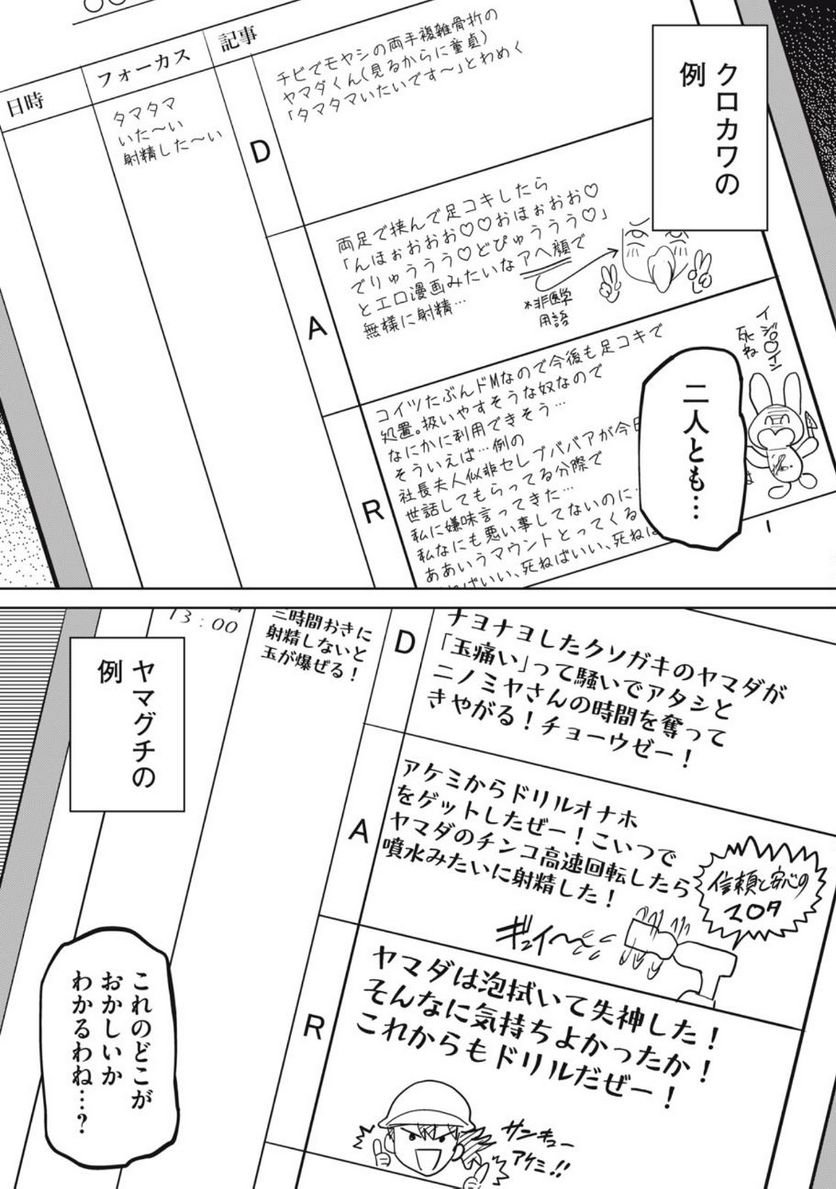 クロカワの
例
日時
フォーカス
記事
タマタマ
いた～い
射精した～い
D
チビでモヤシの両手複雑骨折の
ヤマダくん(見るからに童貞)
「タマタマいたいです～」とわめく
A
両足で挟んで足コキしたら
「んほぉおおお♡♡おほぉおお♡
でりゅううう♡どぴゅううう♡」
とエロ漫画みたいなアヘ顔で
無様に射精…
*非医学
用語
R
コイツたぶんドMなので今後も足コキで
処置。扱いやすそうな奴なので
なにかに利用できそう…
そういえば…例の
社長夫人似非セレブババアが今日
世話してもらってる分際で
私に嫌味言ってきた…
私なにも悪い事してないのに…
ああいうマウントとってくる
ばいい、死ねばいい、死ねは
死ね
1
二人とも…
ヤマグチの
例
13：00
三時間おきに
射精しないと
玉が爆ぜる！
D
ナヨナヨしたクソガキのヤマダが
「玉痛い」って騒いでアタシと
ニノミヤさんの時間を奪って
きやがる！チョーウゼー！
A
アケミからドリルオナホ
をゲットしたぜー！こいつで
ヤマダのチンコ高速回転したら
噴水みたいに射精した！
信頼と安心の
マロタ
ギュイ～～
R
ヤマダは泡拭いて失神した！
そんなに気持ちよかったか！
これからもドリルだぜー！
サンキュー
アケミ!!
これのどこが
おかしいか
わかるわね…？